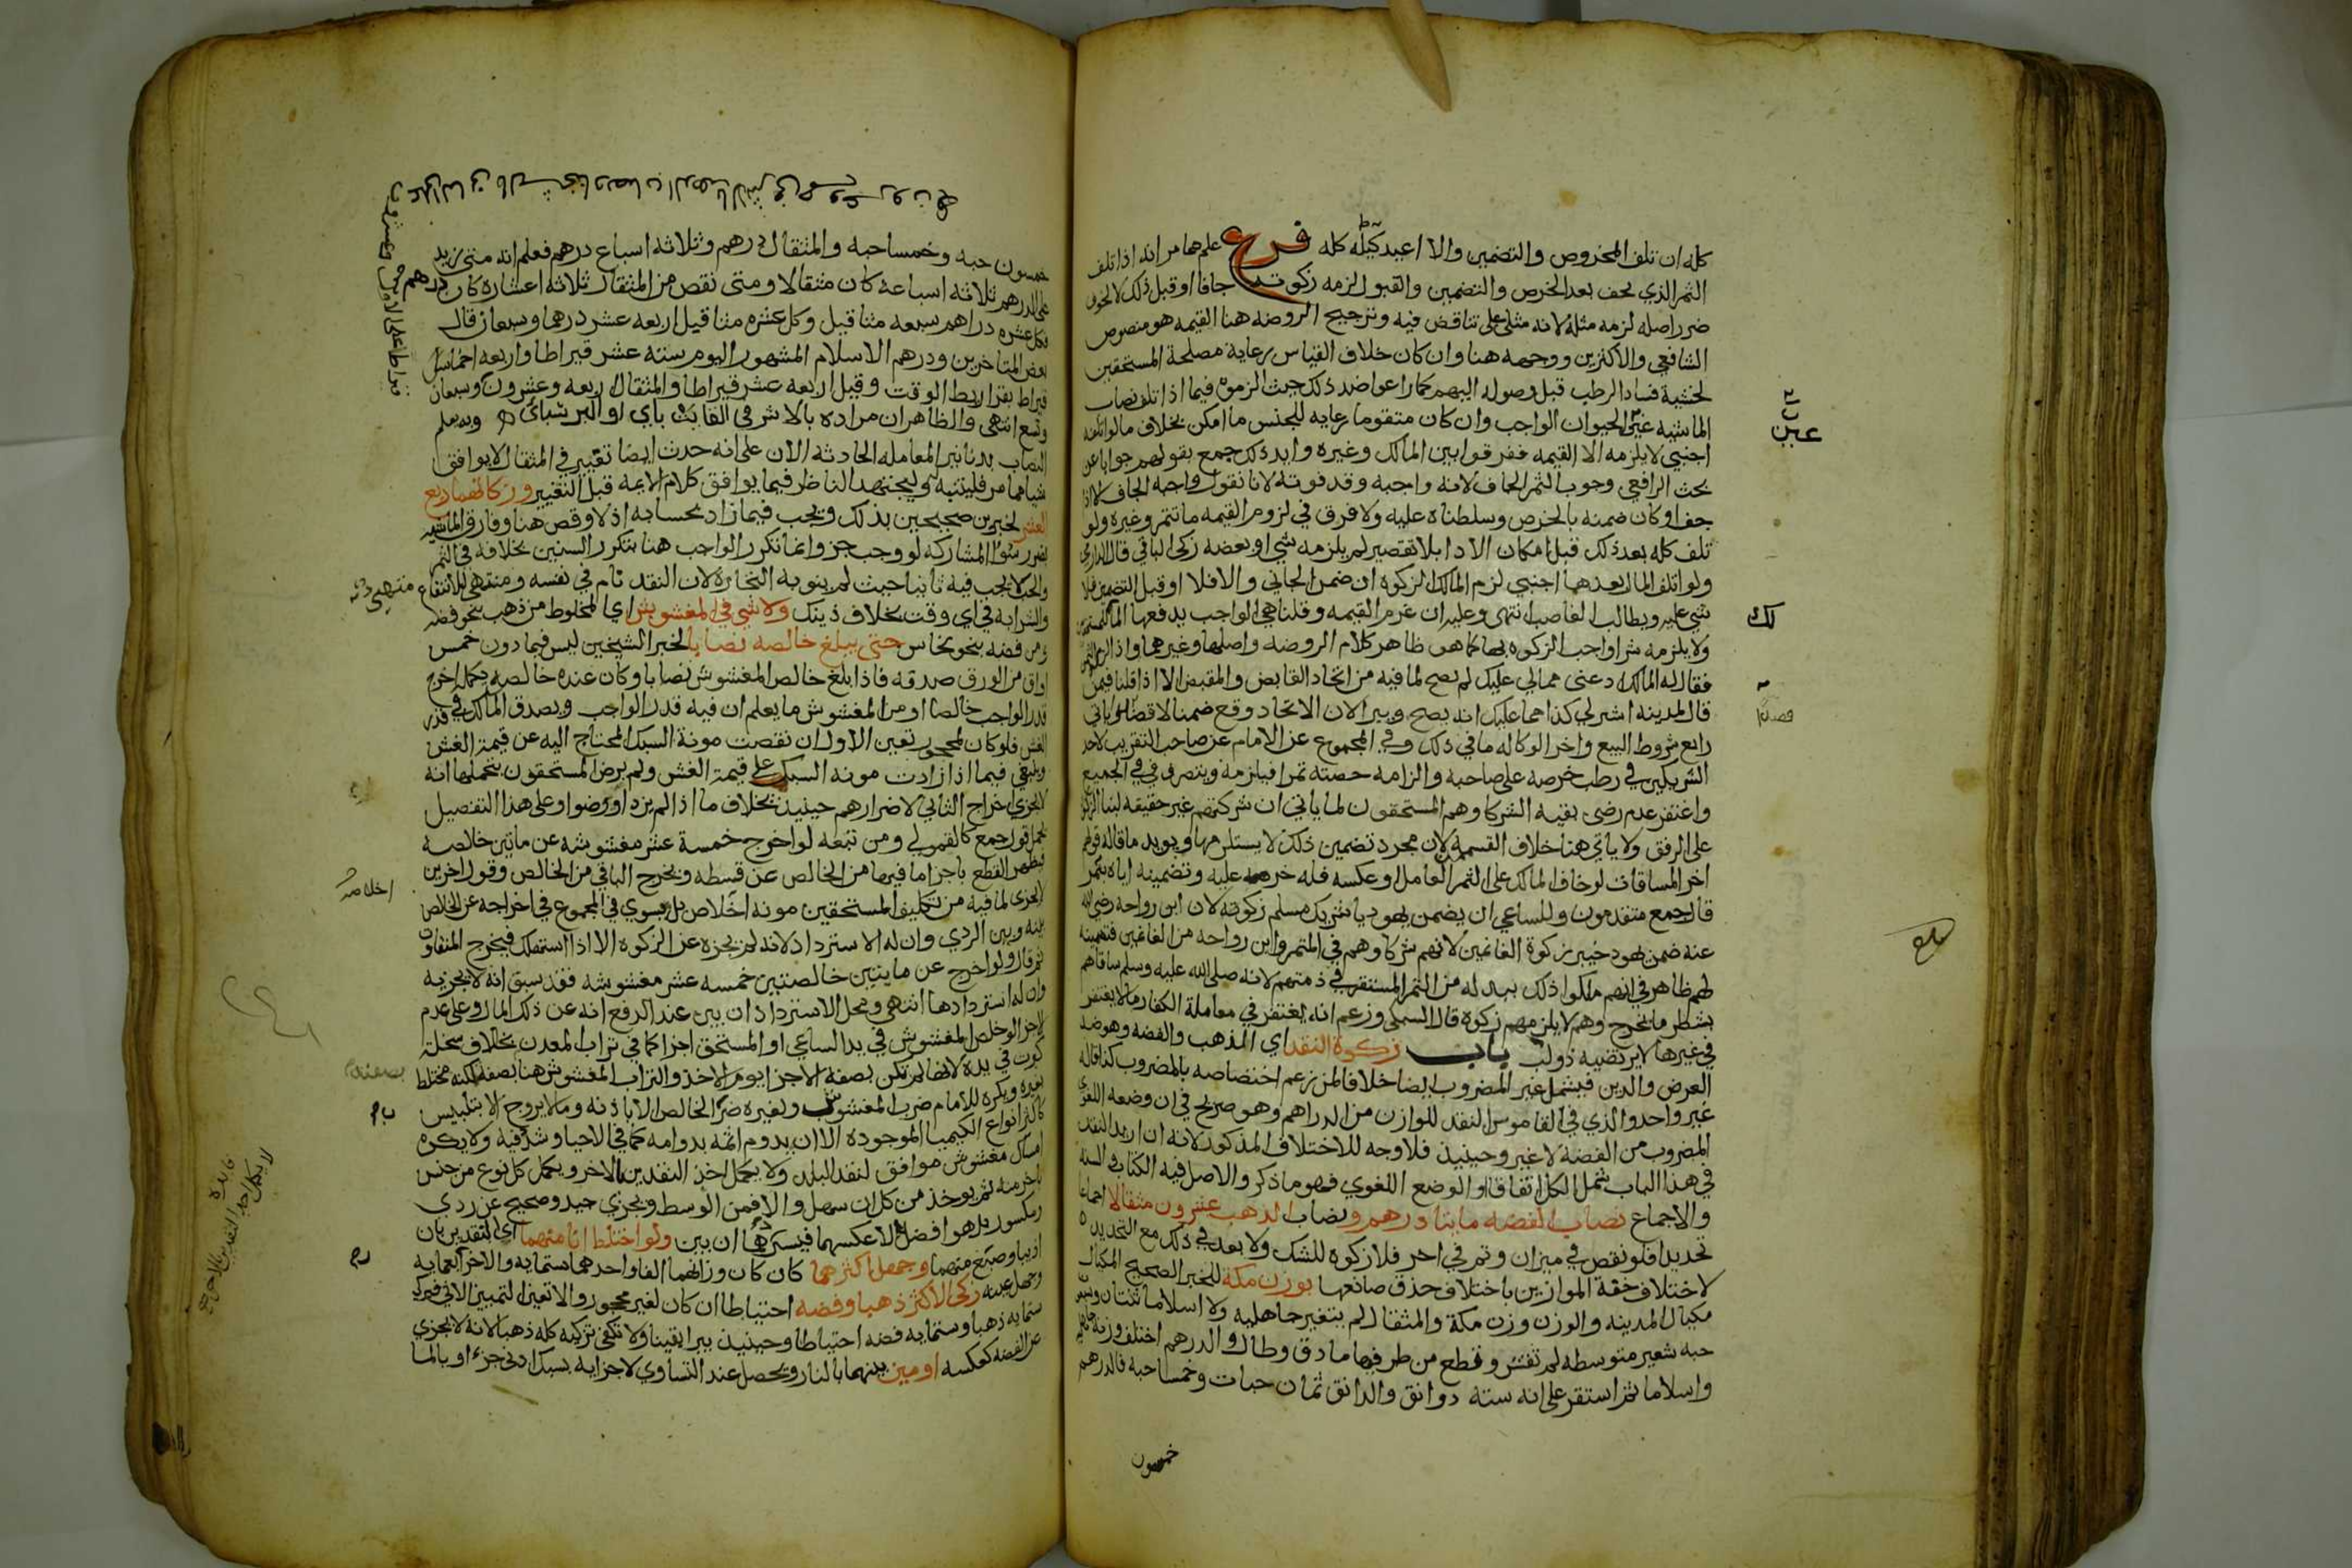 كله ان تلف المخروص والتضمين والا اعيد كيله كله فرع علم مما مر انه اذا تلف
الثمر الذي يجف بعد الخرص والتضمين والقبول لزمه زكوته جافا او قبل ذلك لا لخوف
ضرر اصله لزمه مثله لانه مثلي على تناقض فيه وترجيح الروضه هنا القيمه هو منصوص
الشافعي والاكثرين ووجهه هنا وان كان خلاف القياس رعاية مصلحة المستحقين
لخشية فساد الرطب قبل وصوله اليهم كما راعوا ضد ذلك حيث الزموه فيما اذا تلف نصاب
الماشيه غير الحيوان الواجب وان كان متقوما رعايه للجنس ما امكن بخلاف ما لو اتلفه
اجنبي لا يلزمه الا القيمه ففرقوا بين المالك وغيره وايد ذلك جمع بقولهم جوابا عن
بحث الرافعي وجوب الثمر الجاف لانه واجبه وقد فوته لانا نقول واجبه الجاف لا اذا
جف او كان ضمنه بالخرص وسلطناه عليه ولا فرق في لزوم القيمه ما تتمر وغيره ولو
تلف كله بعد ذلك قبل امكان الادا بلا تقصير لم يلزمه شي او بعضه زكى الباقي قال الدارمي
ولو اتلف المال بعدهما اجنبي لزم المالك الزكوه ان ضمن الجاني والا فلا او قبل التضمين فلا
شي عليه ويطالب الغاصب انتهى وعليه ان غرم القيمه وقلنا هي الواجب يدفعها المالك
ولا يلزمه شرا واجب الزكوه بها كما هو ظاهر كلام الروضه واصلها وغيرهما واذا
فقال له المالك ادعني ممالي عليك لم يصح لما فيه من اتحاد القابض والمقبض الا اذا قلنا فيمن
قال لمدينه اشتر لي كذا مما عليك انه يصح ويبرا لان الاتحاد وقع ضمنا لا قصدا وياتي
رابع شروط البيع واخر الوكاله ما في ذلك وفي المجموع عن الامام عن صاحب التقريب لاحد
الشريكين في رطب خرصه على صاحبه والزامه حصته تمرا فيلزمه ويتصرف في الجميع
واغتفر عدم رضى بقيه الشركا وهم المستحقون لما ياتي ان شركتهم غير حقيقه لبنا الزكوه
على الرفق ولا ياتي هنا خلاف القسمه لان مجرد تضمين ذلك لا يستلزمها ويويد ما قاله قولهم
اخر المساقات لو خاف المالك على الثمر العامل او عكسه فله خرصه عليه وتضمينه اياه بتمر
قال جمع متقدمون وللساعي ان يضمن يهوديا شريك مسلم زكوته لان ابن رواحه رضي الله
عنه ضمن يهود خيبر زكوة الغانمين لانهم شركاوهم في الثمر وابن رواحه من الغانمين فتضمينه
لهم ظاهر في انهم ملكوا ذلك ببدله من الثمر المستقر في ذمتهم لانه صلى الله عليه وسلم ساقاهم
بشطر ما يخرج وهم لا يلزمهم زكوه قال السبكي وزعم انه يغتفر في معاملة الكفار ما لا يغتفر
في غيرها لا يرتضيه ذو لب باب زكوة النقد اي الذهب والفضه وهو ضد
العرض والدين فيشمل غير المضروب ايضا خلافا لمن زعم اختصاصه بالمضروب كذا قاله
غير واحد والذي في القاموس النقد للوازن من الدراهم وهو صريح في ان وضعه اللغوي
المضروب من الفضة لا غير وحينيذ فلا وجه للاختلاف المذكور لانه ان اريد النقد
في هذا الباب شمل الكل اتفاقا او الوضع اللغوي فهو ما ذكر والاصل فيه الكتاب والسنه
والاجماع نصاب الفضه مايتا درهم ونصاب الذهب عشرون مثقالا اجماعا
تحديدا فلو نقص في ميزان وتم في اخر فلا زكوه للشك ولا بعد في ذلك مع التحديد
لاختلاف خفة الموازين باختلاف حذق صانعها بوزن مكة للخبر الصحيح المكيال
مكيال المدينه والوزن وزن مكة والمثقال لم يتغير جاهليه ولا اسلاما ثنتان وسبعون
حبه شعير متوسطه لم تقشر وقطع من طرفيها ما دق وطال والدرهم اختلف وزنه جاهليه
واسلاما ثم استقر على انه ستة دوانق والدانق ثمان حبات وخمسا حبه فالدرهم
خمسون
خمسون حبه وخمسا حبه والمثقال درهم وثلاثه اسباع درهم فعلم انه متى زيد
على الدرهم ثلاثه اسباعه كان مثقالا ومتى نقص من المثقال ثلاثه اعشاره كان درهم
فكل عشره دراهم سبعه مثاقيل وكل عشره مثاقيل اربعه عشر درهما وسبعان قال
بعض المتاخرين ودرهم الاسلام المشهور اليوم سته عشر قيراطا واربعه اخماس
قيراط بقراريط الوقت وقيل اربعه عشر قيراطا والمثقال اربعه وعشرون وسبعان
وتسع انتهى والظاهر ان مراده بالاشرفي القايتباي او البرسباي وبه يعلم
النصاب بدنانير المعامله الحادثه الان على انه حدث ايضا تغيير في المثقال لا يوافق
شيا مما مر فليتنبه له وليجتهد الناظر فيما يوافق كلام الايمه قبل التغيير وزكاتهما ربع
العشر لخبرين صحيحين بذلك ويجب فيما زاد بحسابه اذ لا وقص هنا وفارق الماشيه
بضرر سوء المشاركه لو وجب جزء وانما تكرر الواجب هنا بتكرر السنين بخلافه في الثمر
والحب لا يجب فيه ثانيا حيث لم ينو به التجاره لان النقد نام في نفسه ومتهيى للانتفاع
والشرا به في اي وقت بخلاف ذينك ولا شي في المغشوش اي المخلوط من ذهب بنحو فضه
ومن فضه بنحو نحاس حتى يبلغ خالصه نصابا لخبر الشيخين ليس فيما دون خمس
اواق من الورق صدقه فاذا بلغ خالص المغشوش نصابا وكان عنده خالصه يكمله اخرج
قدر الواجب خالصا او من المغشوش ما يعلم ان فيه قدر الواجب ويصدق المالك في قدر
الغش فلو كان لمحجور تعين الاول ان نقصت مونة السبك المحتاج اليه عن قيمة الغش
وينبغي فيما اذا زادت مونه السبك على قيمة الغش ولم يرض المستحقون بتحملها انه
لا يجزي اخراج الثاني لاضرارهم حينيذ بخلاف ما اذا لم يزد او رضوا وعلى هذا التفصيل
يحمل قول جمع كالقمولي ومن تبعه لو اخرج خمسة عشر مغشوشه عن مايتين خالصه
فيظهر القطع باجزا ما فيها من الخالص عن قسطه ويخرج الباقي من الخالص وقول اخرين
لا يجزى لما فيه من تكليف المستحقين مونه اخلاص بل يسوي في المجموع في اخراجه عن الخالص
بينه وبين الردي وان له الاسترداد لانه لم يجزه عن الزكوه الا اذا استهلك فيخرج التفاوت
ثم قال ولو اخرج عن مايتين خالصتين خمسه عشر مغشوشه فقد سبق انه لا يجزيه
وان له استردادها انتهى ومحل الاسترداد ان بين عند الدفع انه عن ذلك المال وعلى عدم
الاجزا لو خلص المغشوش في يد الساعي او المستحق اجزا كما في تراب المعدن بخلاف سخلة
كبرت في يده لانها لم تكن بصفه الاجزا يوم الاخذ والتراب المغشوش هنا بصفه لكنه مختلط
بغيره ويكره للامام ضرب المغشوش ولغيره ضرب الخالص الا باذنه وما لا يروج الا بتلبيس
كاكثر انواع الكيميا الموجوده الان يدوم اثمه بدوامه كما في الاحيا وشدد فيه ولا يكره
امساك مغشوش موافق لنقد البلد ولا يكمل احد النقدين بالاخر ويكمل كل نوع من جنس
باخر منه ثم يوخذ من كل ان سهل والا فمن الوسط ويجزي جيد وصحيح عن ردي
ومكسور بل هو افضل لا عكسهما فيستردها ان بين ولو اختلط اناء منهما اي النقدين بان
اذيبا وصيغ منهما وجهل اكثرهما كان كان وزنهما الفا واحدهما ستمايه والاخر اربعمايه
وجهل عينه زكي الاكثر ذهبا وفضه احتياطا ان كان لغير محجور والا تعين التمييز الاتي فيزكي
ستمايه ذهبا وستمايه فضه احتياطا وحينيذ يبرا يقينا ولا تكفي تزكيه كله ذهبا لانه لا يجزي
عن الفضه كعكسه او ميز بينهما بالنار ويحصل عند التساوي لاجزايه بسبك ادنى جزء او بالما
اخلاص
لا يكمل احد النقدين بالاخر